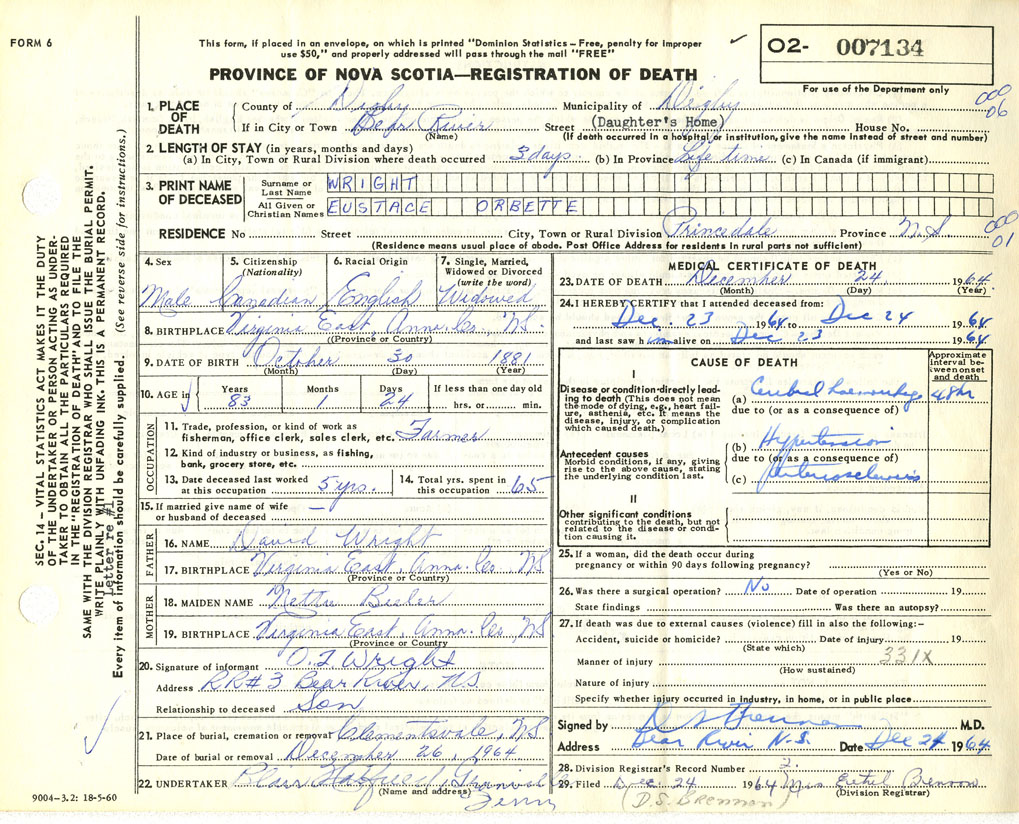 FORM 6
This form, if placed in an envelope, on which is printed "Dominion Statistics – Free, penalty for improper
use $50," and properly addressed will pass through the mail "FREE"
O2- 007134
For use of the Department only
PROVINCE OF NOVA SCOTIA—REGISTRATION OF DEATH
000
06
1. PLACE OF DEATH
County of Digby Municipality of Digby
If in City or Town Bear River Street (Daughter's Home) House No.
(Name) (If death occurred in a hospital or institution, give the name instead of street and number)
2. LENGTH OF STAY (in years, months and days)
(a) In City, Town or Rural Division where death occurred 3 days (b) In Province Life time (c) In Canada (if immigrant)
3. PRINT NAME OF DECEASED
Surname or Last Name WRIGHT
All Given or Christian Names EUSTACE ORBETTE
RESIDENCE No Street City, Town or Rural Division Princedale Province N.S
000
01
(Residence means usual place of abode. Post Office Address for residents in rural parts not sufficient)
4. Sex
Male
5. Citizenship (Nationality)
Canadian
6. Racial Origin
English
7. Single, Married, Widowed or Divorced (write the word)
Widowed
8. BIRTHPLACE Virginia East, Anna. Co., NS.
(Province or Country)
9. DATE OF BIRTH October 30 1881
(Month) (Day) (Year)
10. AGE in
Years 83
Months 1
Days 24
If less than one day old
hrs. or min.
OCCUPATION
11. Trade, profession, or kind of work as
fisherman, office clerk, sales clerk, etc. Farmer
12. Kind of industry or business, as fishing,
bank, grocery store, etc.
13. Date deceased last worked at this occupation 5 yrs.
14. Total yrs. spent in this occupation 65
15. If married give name of wife
or husband of deceased –
FATHER
16. NAME David Wright
17. BIRTHPLACE Virginia East, Anna. Co NS
(Province or Country)
MOTHER
18. MAIDEN NAME Nettie
19. BIRTHPLACE Virginia East, Anna. Co, NS
(Province or Country)
20. Signature of informant Wright
Address RR#3 Bear River, NS
Relationship to deceased Son
21. Place of burial, cremation or removal Clementsvale, NS
Date of burial or removal December 26, 1964
22. UNDERTAKER Blair
(Name and address)
Ferry
9004-3.2: 18-5-60
MEDICAL CERTIFICATE OF DEATH
23. DATE OF DEATH December 24 1964
(Month) (Day) (Year)
24. I HEREBY CERTIFY that I attended deceased from:
Dec. 23 1964 to Dec 24 1964
and last saw him alive on Dec 23 1964
CAUSE OF DEATH
Approximate interval between onset and death
I
Disease or condition directly leading to death (This does not mean the mode of dying, e.g., heart failure, asthenia, etc. It means the disease, injury, or complication which caused death.)
(a) Cerebral haemorrhage 48hr
due to (or as a consequence of)
Antecedent causes
Morbid conditions, if any, giving rise to the above cause, stating the underlying condition last.
(b) Hypertension
due to (or as a consequence of)
(c) Arteriosclerosis
II
Other significant conditions
contributing to the death, but not related to the disease or condition causing it.
25. If a woman, did the death occur during
pregnancy or within 90 days following pregnancy?
(Yes or No)
26. Was there a surgical operation? No Date of operation 19
State findings Was there an autopsy?
27. If death was due to external causes (violence) fill in also the following:-
Accident, suicide or homicide? Date of injury 19
(State which)
331X
Manner of injury
(How sustained)
Nature of injury
Specify whether injury occurred in industry, in home, or in public place
Signed by M.D.
Address Bear River N.S. Date Dec 24 1964
28. Division Registrar's Record Number 2.
29. Filed Dec 24 1964 Ethel Brennan
(Division Registrar)
(D.S. BRENNAN)
SEC. 14 – VITAL STATISTICS ACT MAKES IT THE DUTY
OF THE UNDERTAKER OR PERSON ACTING AS UNDER-
TAKER TO OBTAIN ALL THE PARTICULARS REQUIRED
IN THE "REGISTRATION OF DEATH" AND TO FILE THE
SAME WITH THE DIVISION REGISTRAR WHO SHALL ISSUE THE BURIAL PERMIT.
WRITE PLAINLY WITH UNFADING INK. THIS IS A PERMANENT RECORD.
Letter re #1
Every item of information should be carefully supplied. (See reverse side for instructions.)